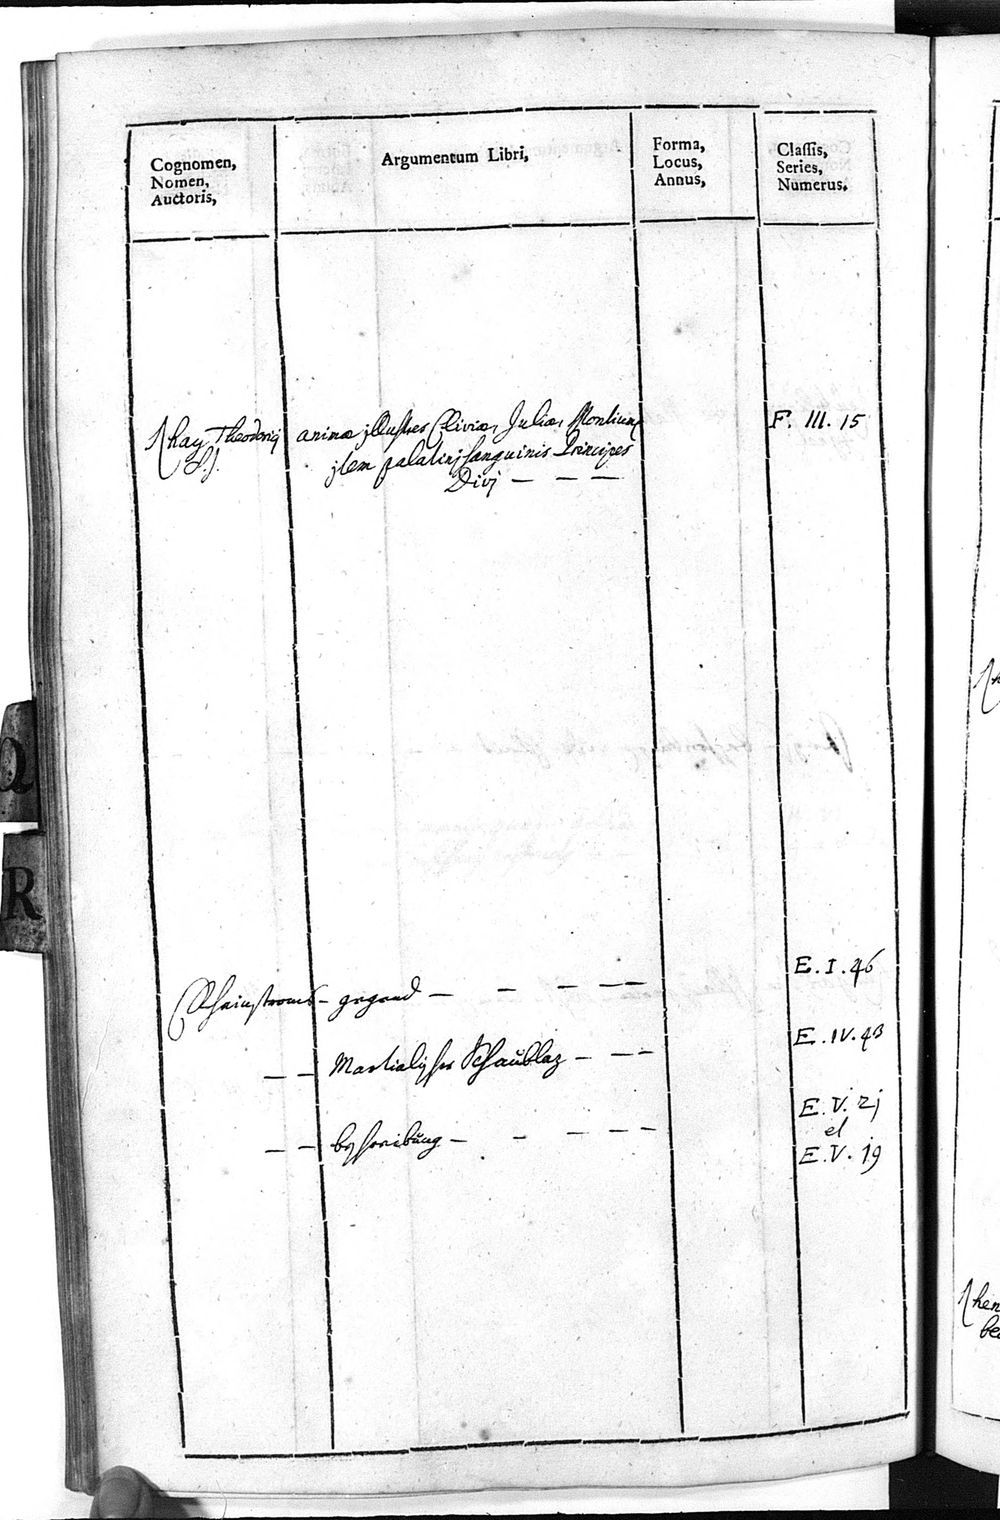 Cognomen,
Nomen,
Auctoris,
Argumentum Libri,
Forma,
Locus,
Annus,
Classis,
Series,
Numerus.
Rhay Theodorij
S.J.
animæ jllustres Cliviæ, Juliæ, Montium,
jtem palatinj sanguinis Principes
Divj — — —
F. III. 15
Rheinstroms - gegend — — — — —
E. I. 46
— — Martialischer Schaüblaz — — —
E. IV. 43
— — beschreibüng — — — — —
E. V. 2j
el
E. V. 19
Q
R
Rhen